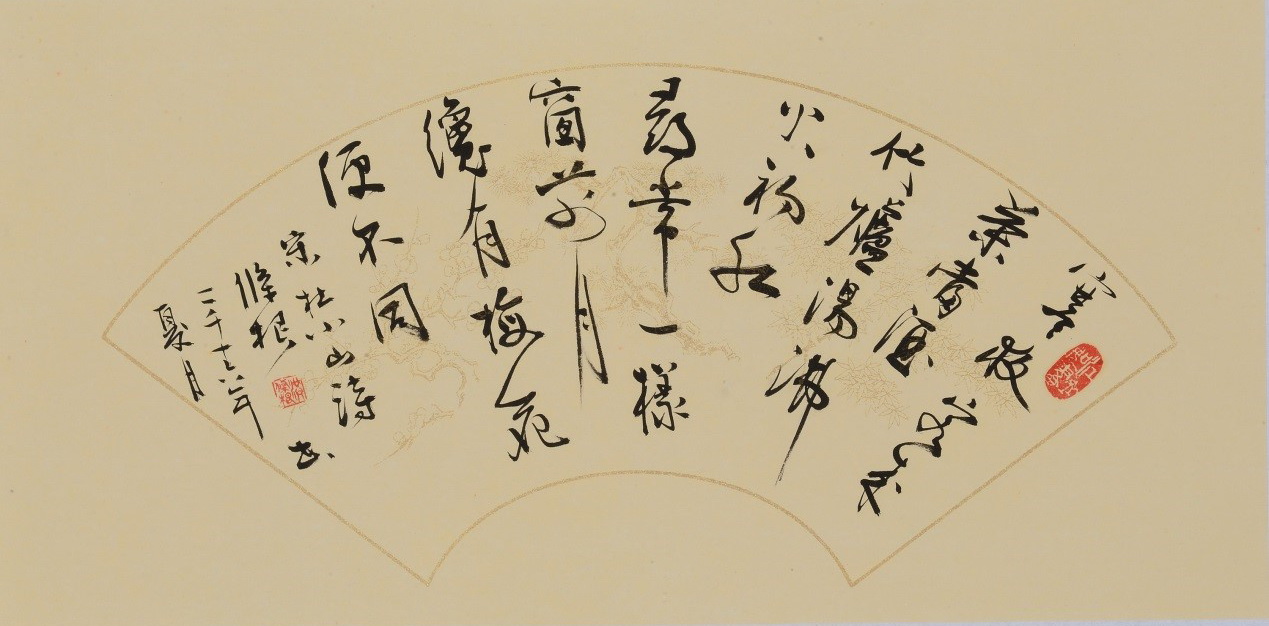 寒夜客來
茶當酒
竹爐湯沸
火初紅
尋常一樣
窗前月
纔有梅花
便不同
宋杜小山詩
根書
二千十六年
夏月